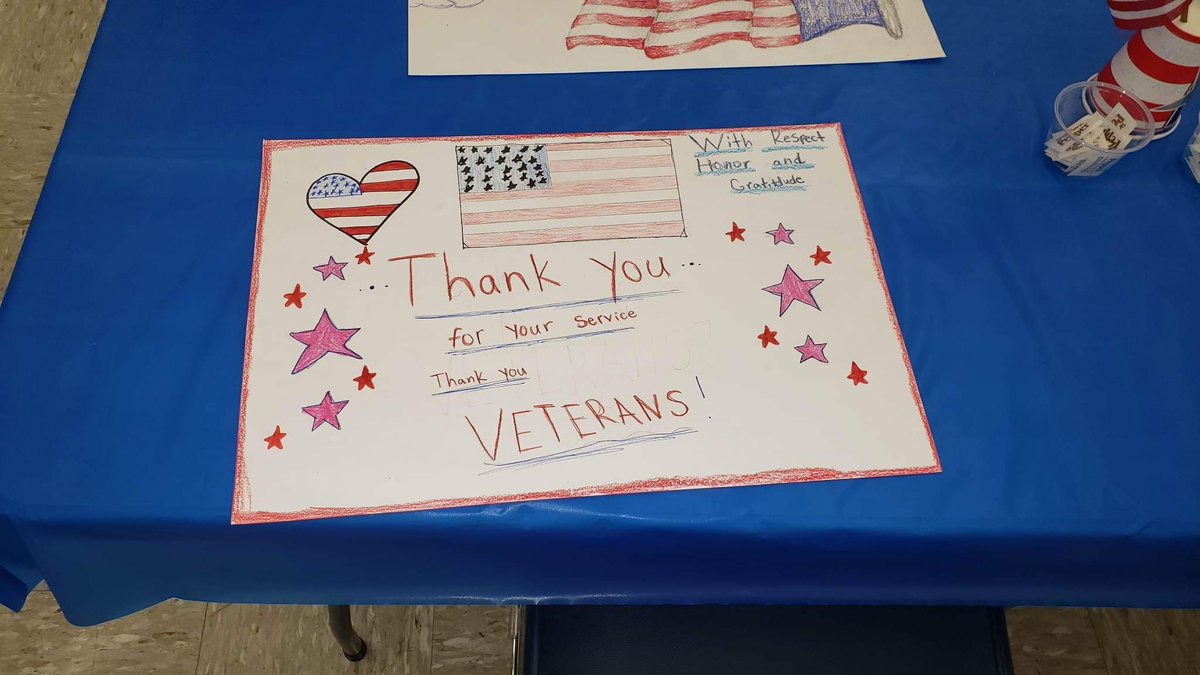 With Respect
Honor and
Gratitude
....Thank you...
for your service
Thank you
VETERANS!